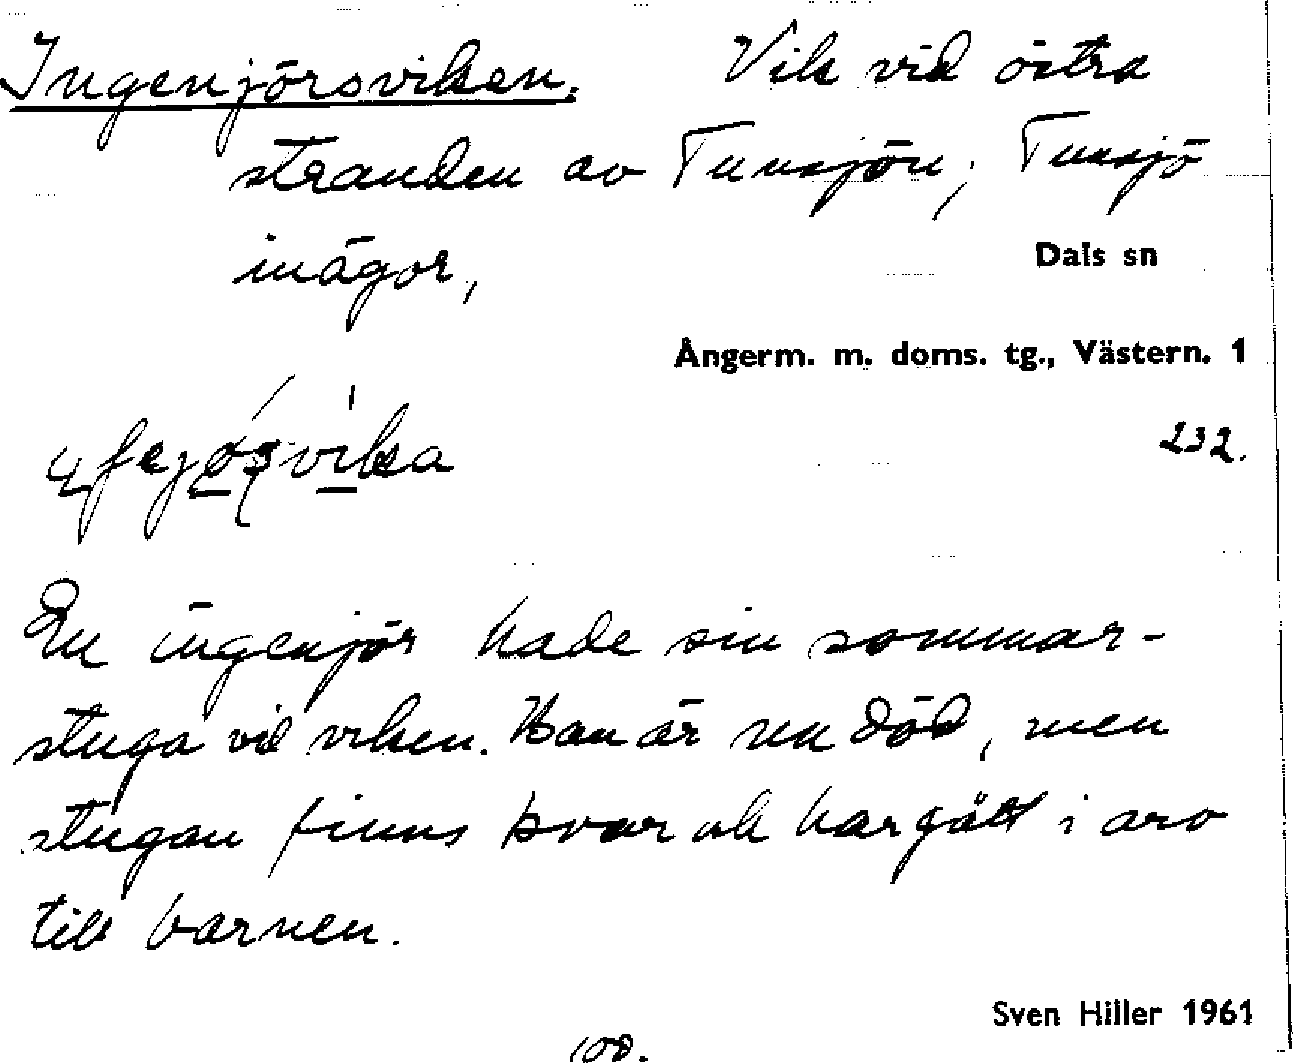 Ingenjörsviken. Vik vid östra
stranden av Tunsjön; Tunsjö
inägor,
Dals sn
Ångerm. m. doms. tg., Västern. 1
232.
En ingenjör hade sin sommar-
stuga vid viken. Han är nu död, men
stugan finns kvar och har gått i arv
till barnen.
Sven Hiller 1961
100.